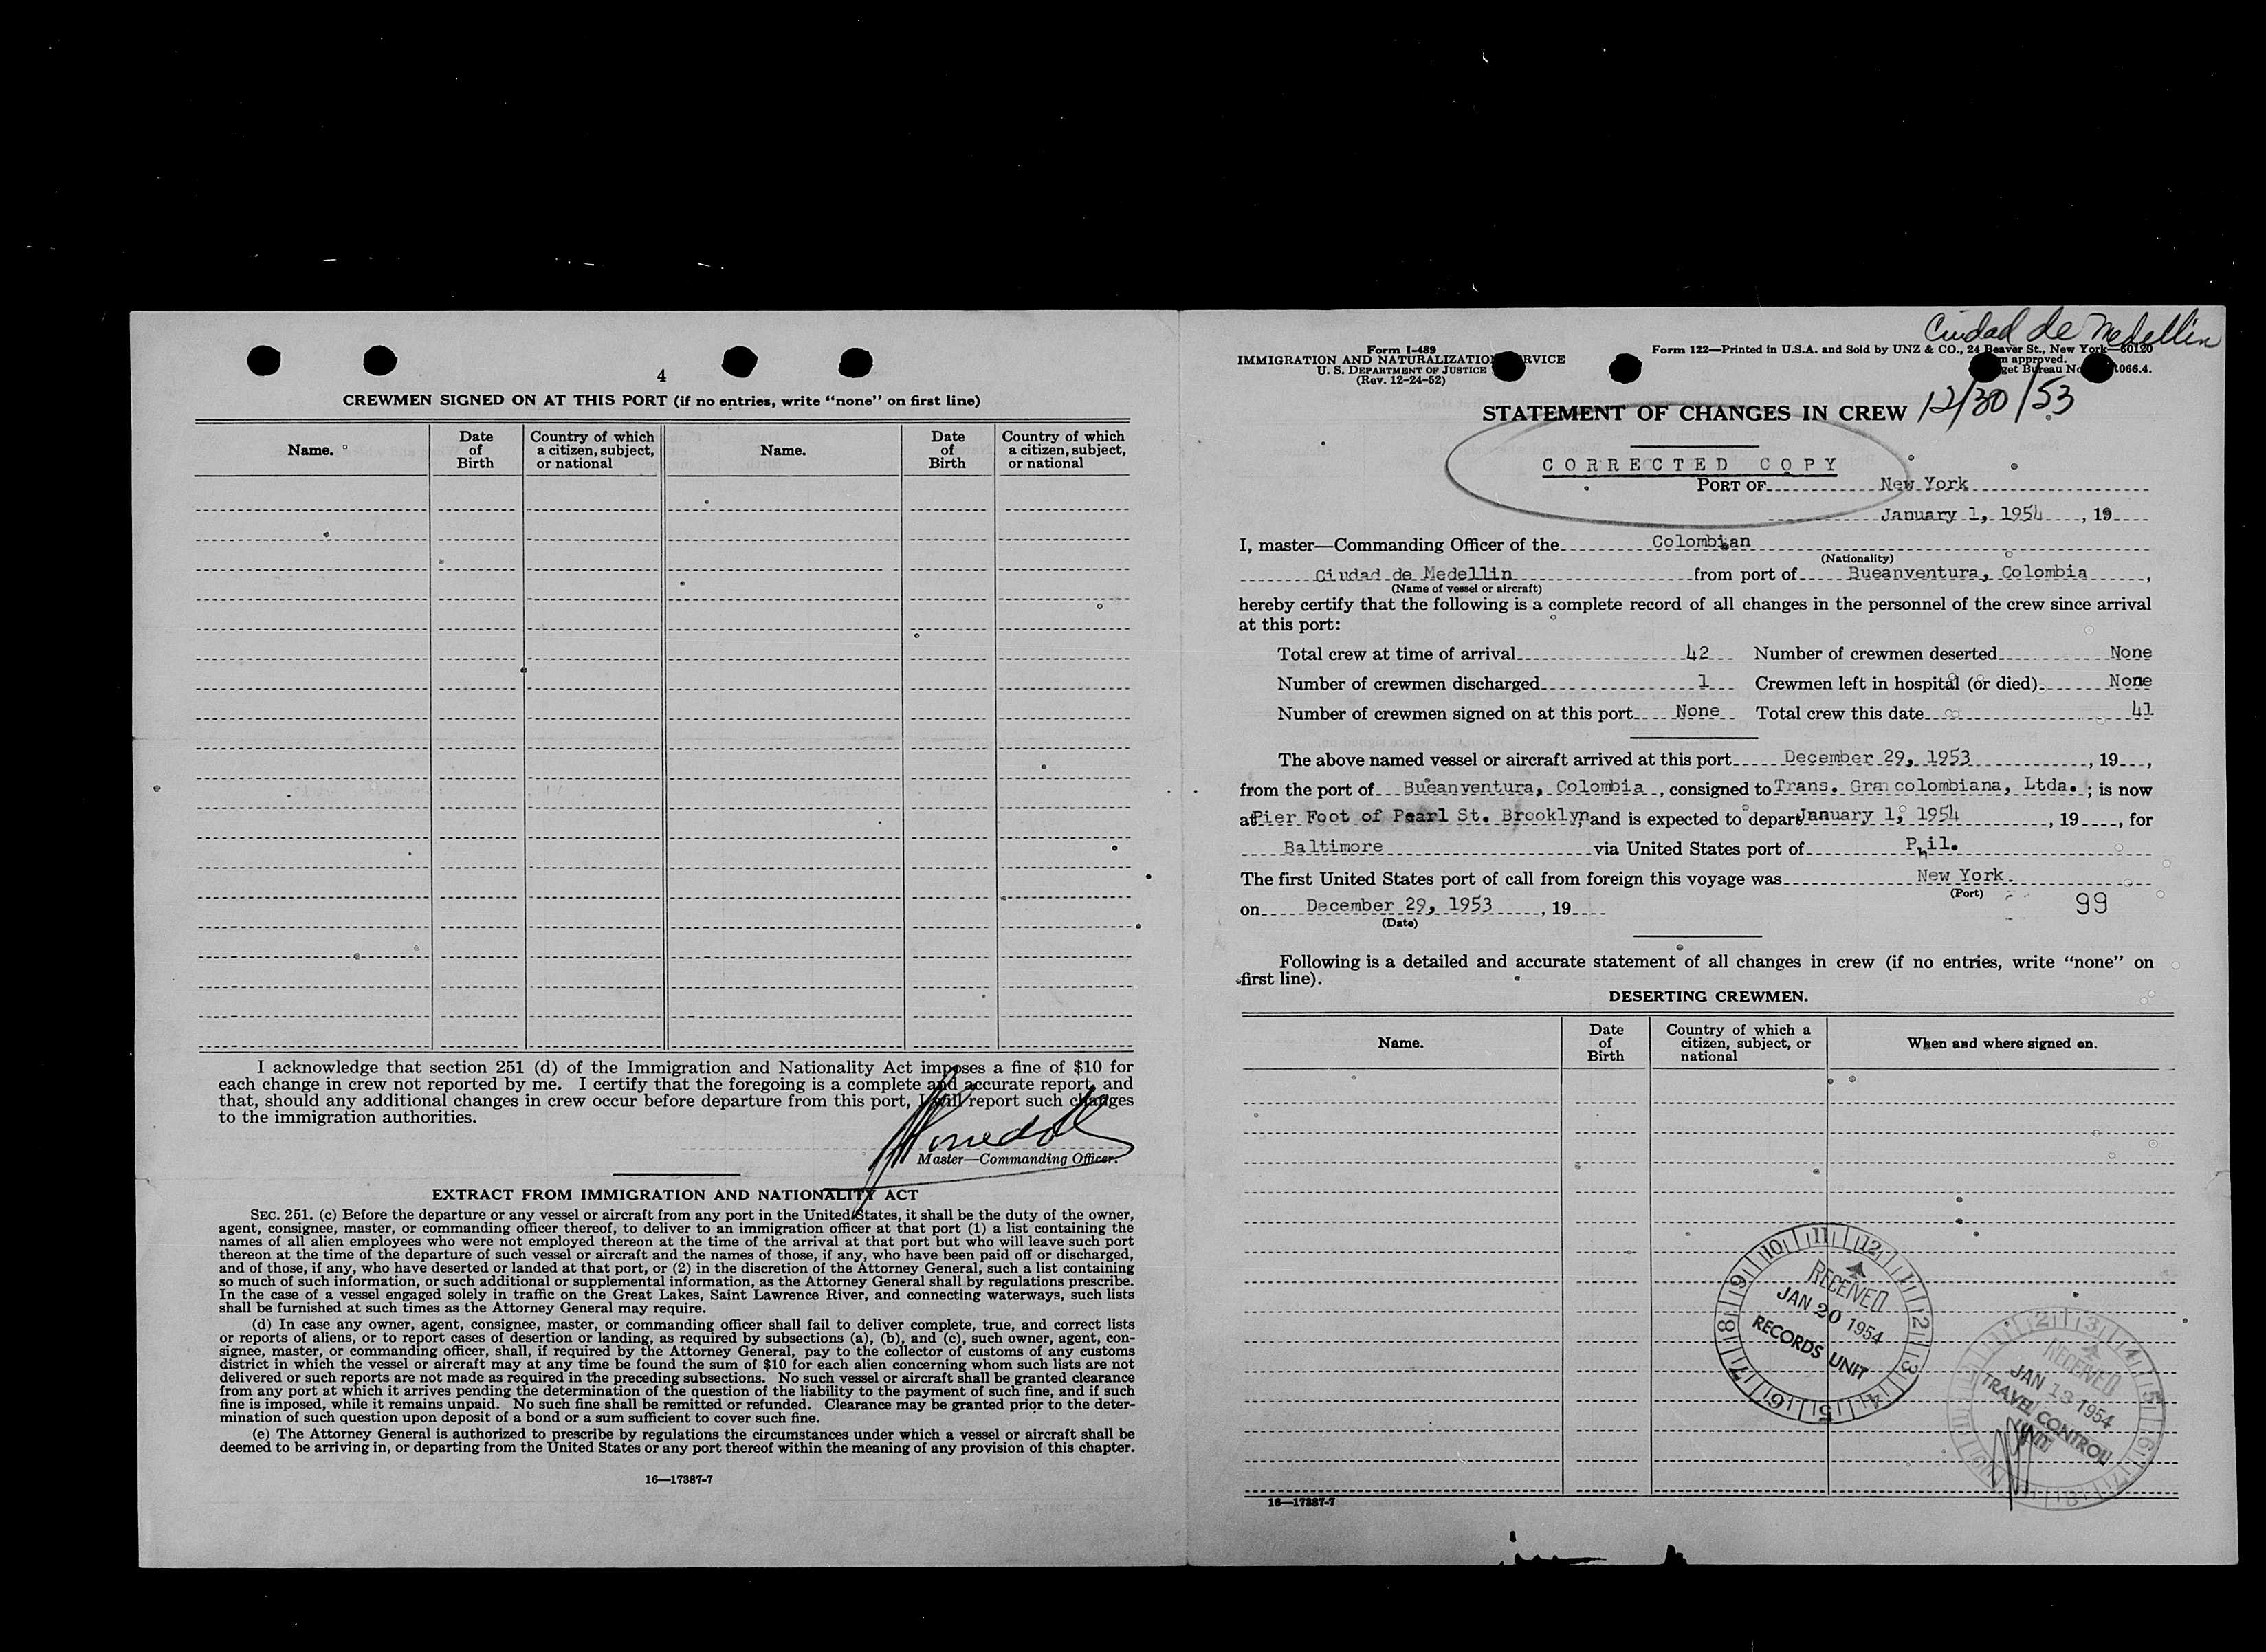 4
CREWMEN SIGNED ON AT THIS PORT (if no entries, write “none” on first line)
Name. Date of Birth Country of which a citizen, subject, or national Name. Date of Birth Country of which a citizen, subject, or national
I acknowledge that section 251 (d) of the Immigration and Nationality Act imposes a fine of $10 for
each change in crew not reported by me. I certify that the foregoing is a complete and accurate report, and
that, should any additional changes in crew occur before departure from this port, I will report such changes
to the immigration authorities.
Master—Commanding Officer.
EXTRACT FROM IMMIGRATION AND NATIONALITY ACT
SEC. 251. (c) Before the departure or any vessel or aircraft from any port in the United States, it shall be the duty of the owner,
agent, consignee, master, or commanding officer thereof, to deliver to an immigration officer at that port (1) a list containing the
names of all alien employees who were not employed thereon at the time of the arrival at that port but who will leave such port
thereon at the time of the departure of such vessel or aircraft and the names of those, if any, who have been paid off or discharged,
and of those, if any, who have deserted or landed at that port, or (2) in the discretion of the Attorney General, such a list containing
so much of such information, or such additional or supplemental information, as the Attorney General shall by regulations prescribe.
In the case of a vessel engaged solely in traffic on the Great Lakes, Saint Lawrence River, and connecting waterways, such lists
shall be furnished at such times as the Attorney General may require.
(d) In case any owner, agent, consignee, master, or commanding officer shall fail to deliver complete, true, and correct lists
or reports of aliens, or to report cases of desertion or landing, as required by subsections (a), (b), and (c), such owner, agent, con-
signee, master, or commanding officer, shall, if required by the Attorney General, pay to the collector of customs of any customs
district in which the vessel or aircraft may at any time be found the sum of $10 for each alien concerning whom such lists are not
delivered or such reports are not made as required in the preceding subsections. No such vessel or aircraft shall be granted clearance
from any port at which it arrives pending the determination of the question of the liability to the payment of such fine, and if such
fine is imposed, while it remains unpaid. No such fine shall be remitted or refunded. Clearance may be granted prior to the deter-
mination of such question upon deposit of a bond or a sum sufficient to cover such fine.
(e) The Attorney General is authorized to prescribe by regulations the circumstances under which a vessel or aircraft shall be
deemed to be arriving in, or departing from the United States or any port thereof within the meaning of any provision of this chapter.
16—17387-7
Ciudad de Medellin
Form I-489
IMMIGRATION AND NATURALIZATIO RVICE
U. S. DEPARTMENT OF JUSTICE
(Rev. 12-24-52)
Form 122—Printed in U.S.A. and Sold by UNZ & CO., 24 Beaver St., New York—60120
approved.
get Bureau No 066.4.
STATEMENT OF CHANGES IN CREW 12/30/53
CORRECTED COPY
PORT OF New York
January 1, 1954, 19
I, master—Commanding Officer of the Colombian
(Nationality)
Ciudad de Medellin from port of Bueanventura, Colombia,
(Name of vessel or aircraft)
hereby certify that the following is a complete record of all changes in the personnel of the crew since arrival
at this port:
Total crew at time of arrival 42 Number of crewmen deserted None
Number of crewmen discharged 1 Crewmen left in hospital (or died) None
Number of crewmen signed on at this port None Total crew this date 41
The above named vessel or aircraft arrived at this port December 29, 1953, 19 ,
from the port of Bueanventura, Colombia, consigned to Trans. Gra colombiana, Ltda.; is now
at Pier Foot of Pearl St. Brooklyn, and is expected to depart January 1, 1954, 19 , for
Baltimore via United States port of Phil.
The first United States port of call from foreign this voyage was New York.
(Port)
on December 29, 1953, 19
(Date)
99
Following is a detailed and accurate statement of all changes in crew (if no entries, write “none” on
first line).
DESERTING CREWMEN.
Name. Date of Birth Country of which a citizen, subject, or national When and where signed on.
10 11 12 1 2 3 4 5 6 7 8 9
RECEIVED
JAN 20 1954
RECORDS UNIT
RECEIVED
JAN 13 1954
TRAVEL CONTROL
UNIT
16—17387-7